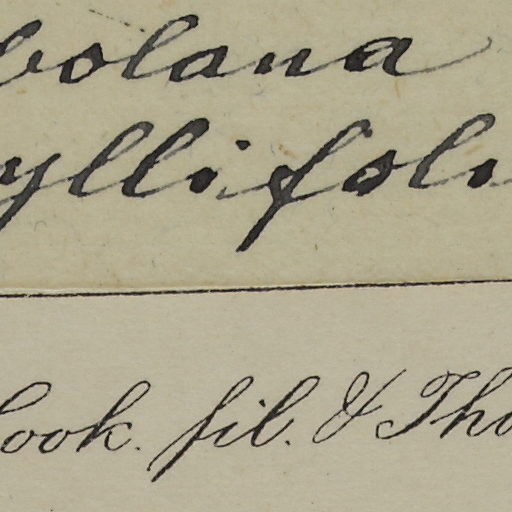 bolana
yllifoli
Hook. fil. & Tho